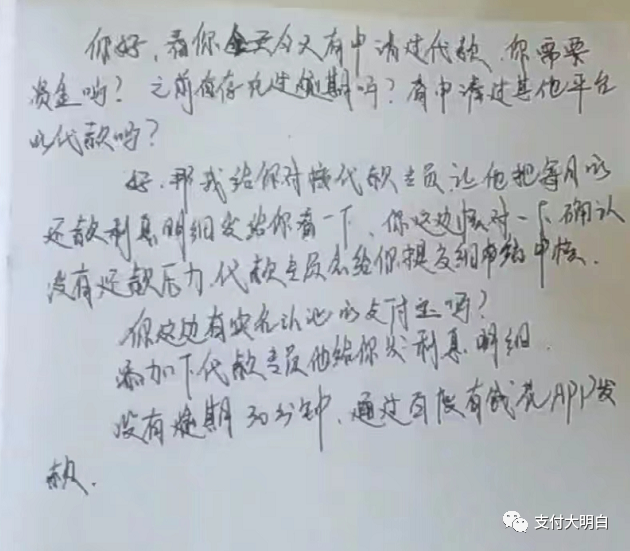 你好，看你今天有申请过代款，你需要
资金吗？之前有存在过逾期吗？有申请过其他平台
的代款吗？
好，那我给你对接代款专员，让他把每月的
还款利息明细发给你看一下，你这边核对一下，确认
没有还款压力，代款专员会给你提交细审核。
你这边有实名认证的支付宝吗？
添加下代款专员他给你发利息明细．
没有逾期30分钟，通过百度有钱花APP发
款．
支付大明白